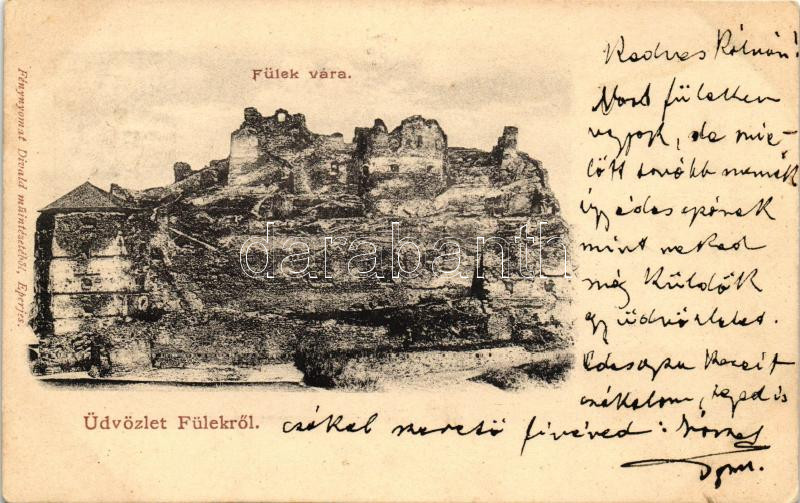 Fülek vára.
Fénynyomat Divald műintézetéből, Eperjes.
darabanth
Üdvözlet Fülekről.
Kedves Kálmán!
Most füleken
vagyok, de mie-
lőtt tovább mennék
úgy édes apának
mint neked
még küldök
egy üdvözletet.
Édesapa kezeit
csókolom, téged is
csókol szerető